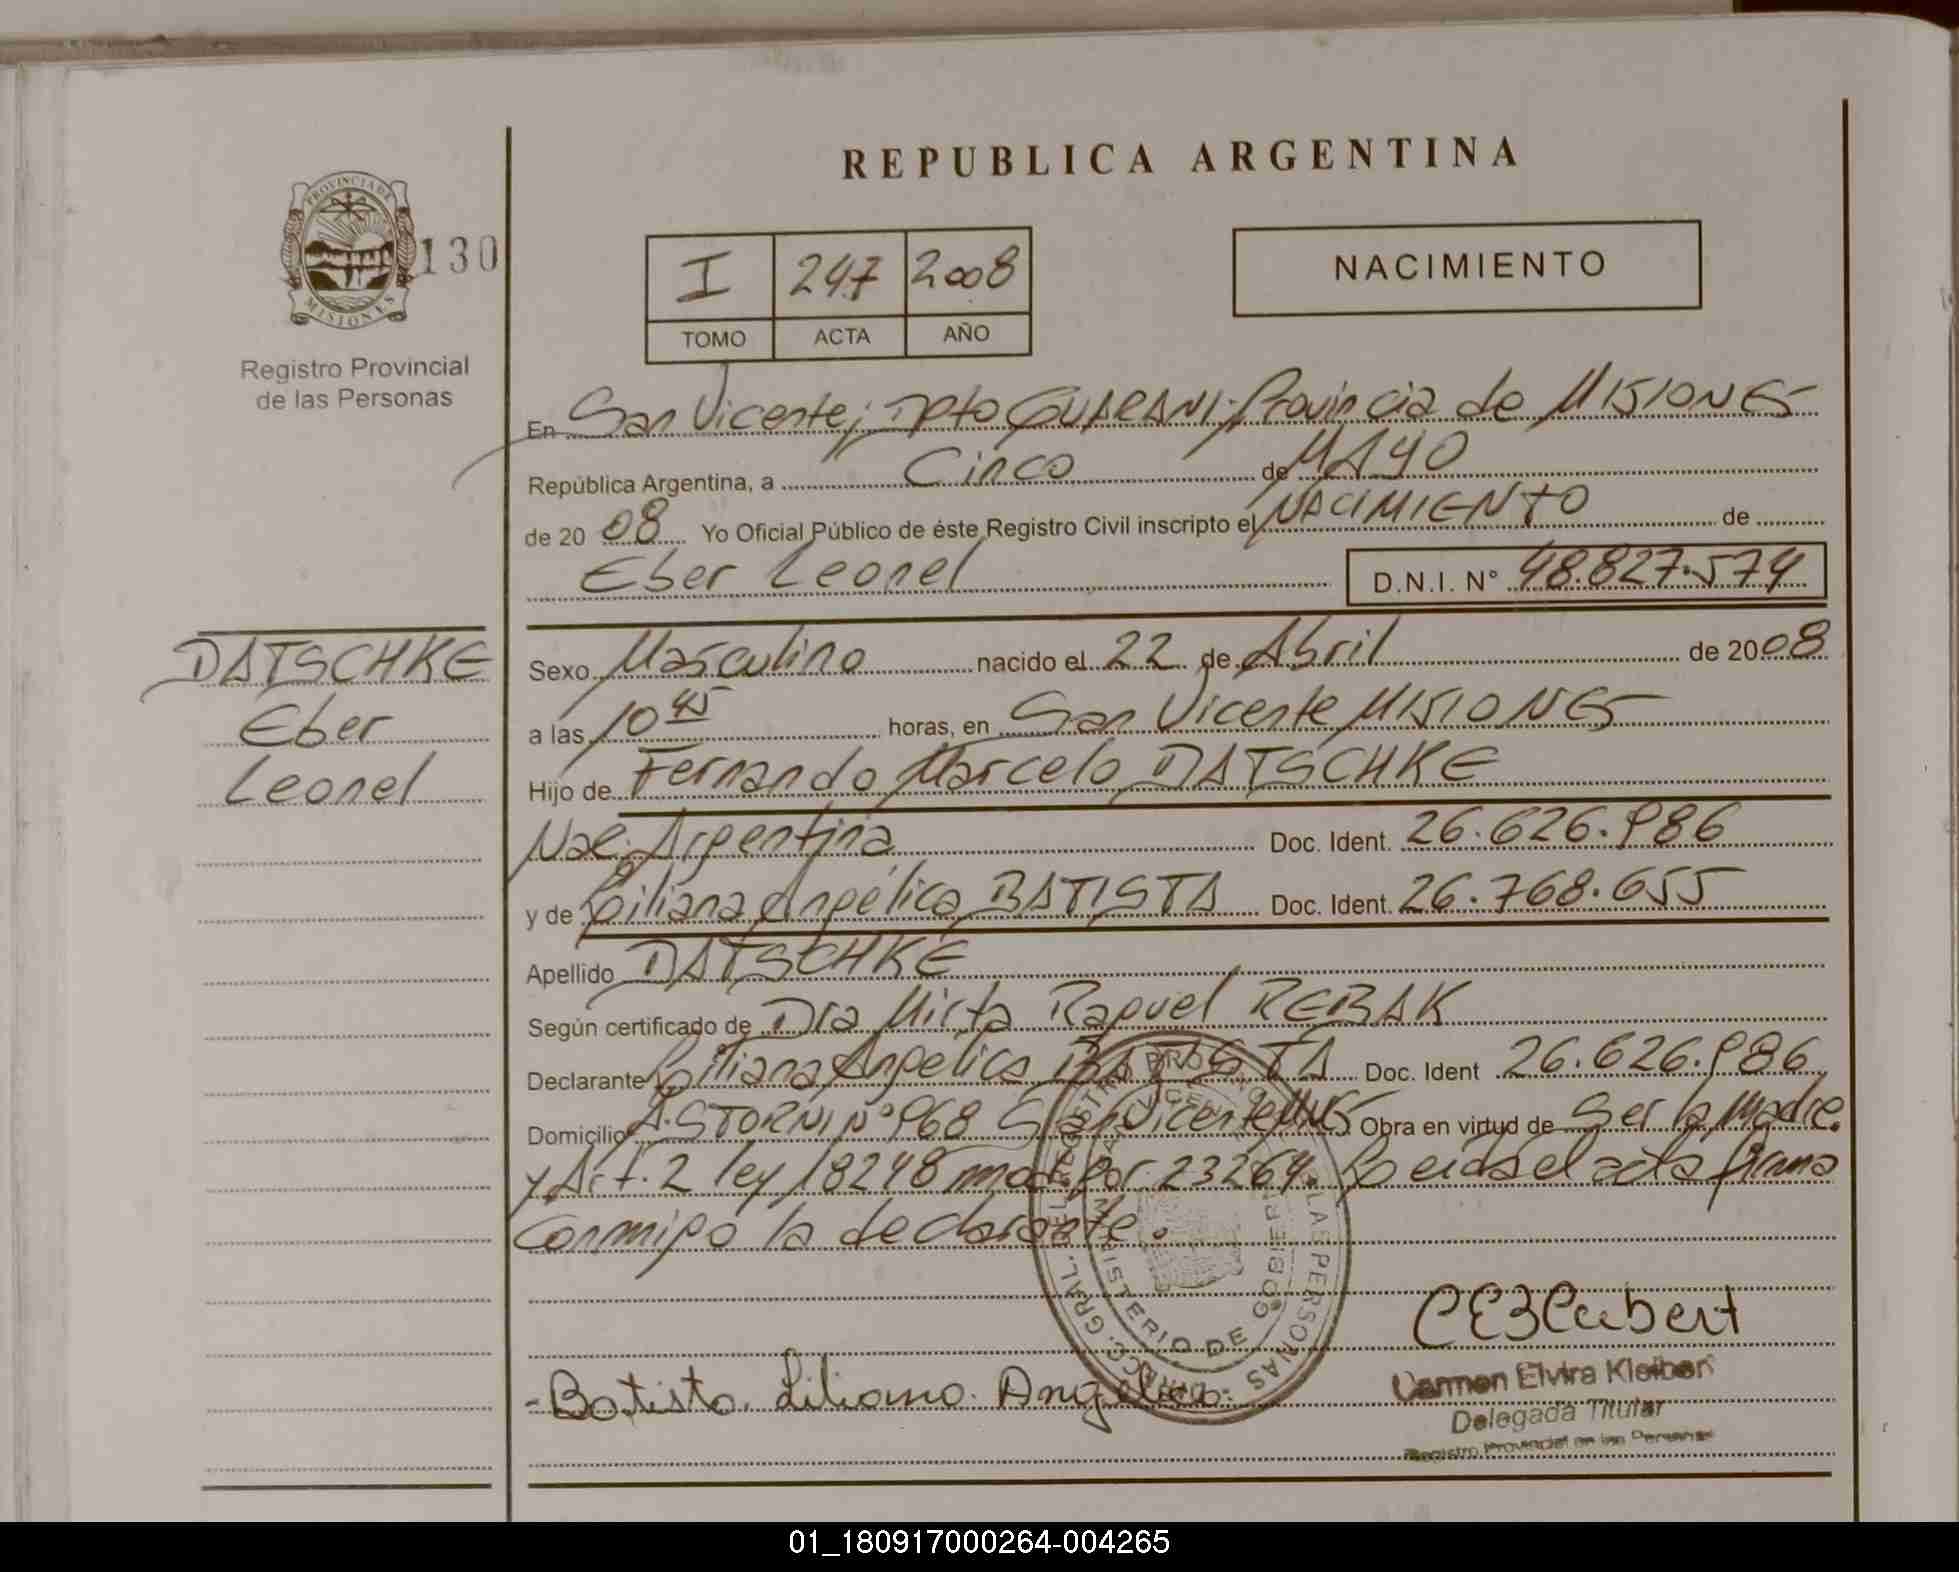 REPUBLICA ARGENTINA
PROVINCIA DE
MISIONES
130
Registro Provincial
de las Personas
I 247 2008
TOMO ACTA AÑO
NACIMIENTO
En San Vicente, Dpto GUARANI-Provincia de MISIONES
República Argentina, a Cinco de MAYO
de 20 08 Yo Oficial Público de éste Registro Civil inscripto el NACIMIENTO de
Eber Leonel D.N.I. N° 48.827.574
DATSCHKE
Eber
Leonel
Sexo Masculino nacido el 22 de Abril de 2008
a las 10 45 horas, en San Vicente MISIONES
Hijo de Fernando Marcelo DATSCHKE
Nac. Argentina Doc. Ident. 26.626.986
y de Liliana Angélica BATISTA Doc. Ident. 26.768.655
Apellido DATSCHKE
Según certificado de Dra Mirta Raquel REBAK
Declarante Liliana Angelica BATISTA Doc. Ident 26.626.986
Domicilio A. STORNI N° 968 San Vicente MNES Obra en virtud de Ser la Madre.
y Art. 2 ley 18248 mod. por 23264. Leida el acta firma
conmigo la declarante.
MINISTERIO DE GOBIERNO
LAS PERSONAS
Batista. Liliana. Angelica.
Carmen Elvira Kleiber
Delegada Titular
Registro Provincial de las Personas
01_180917000264-004265